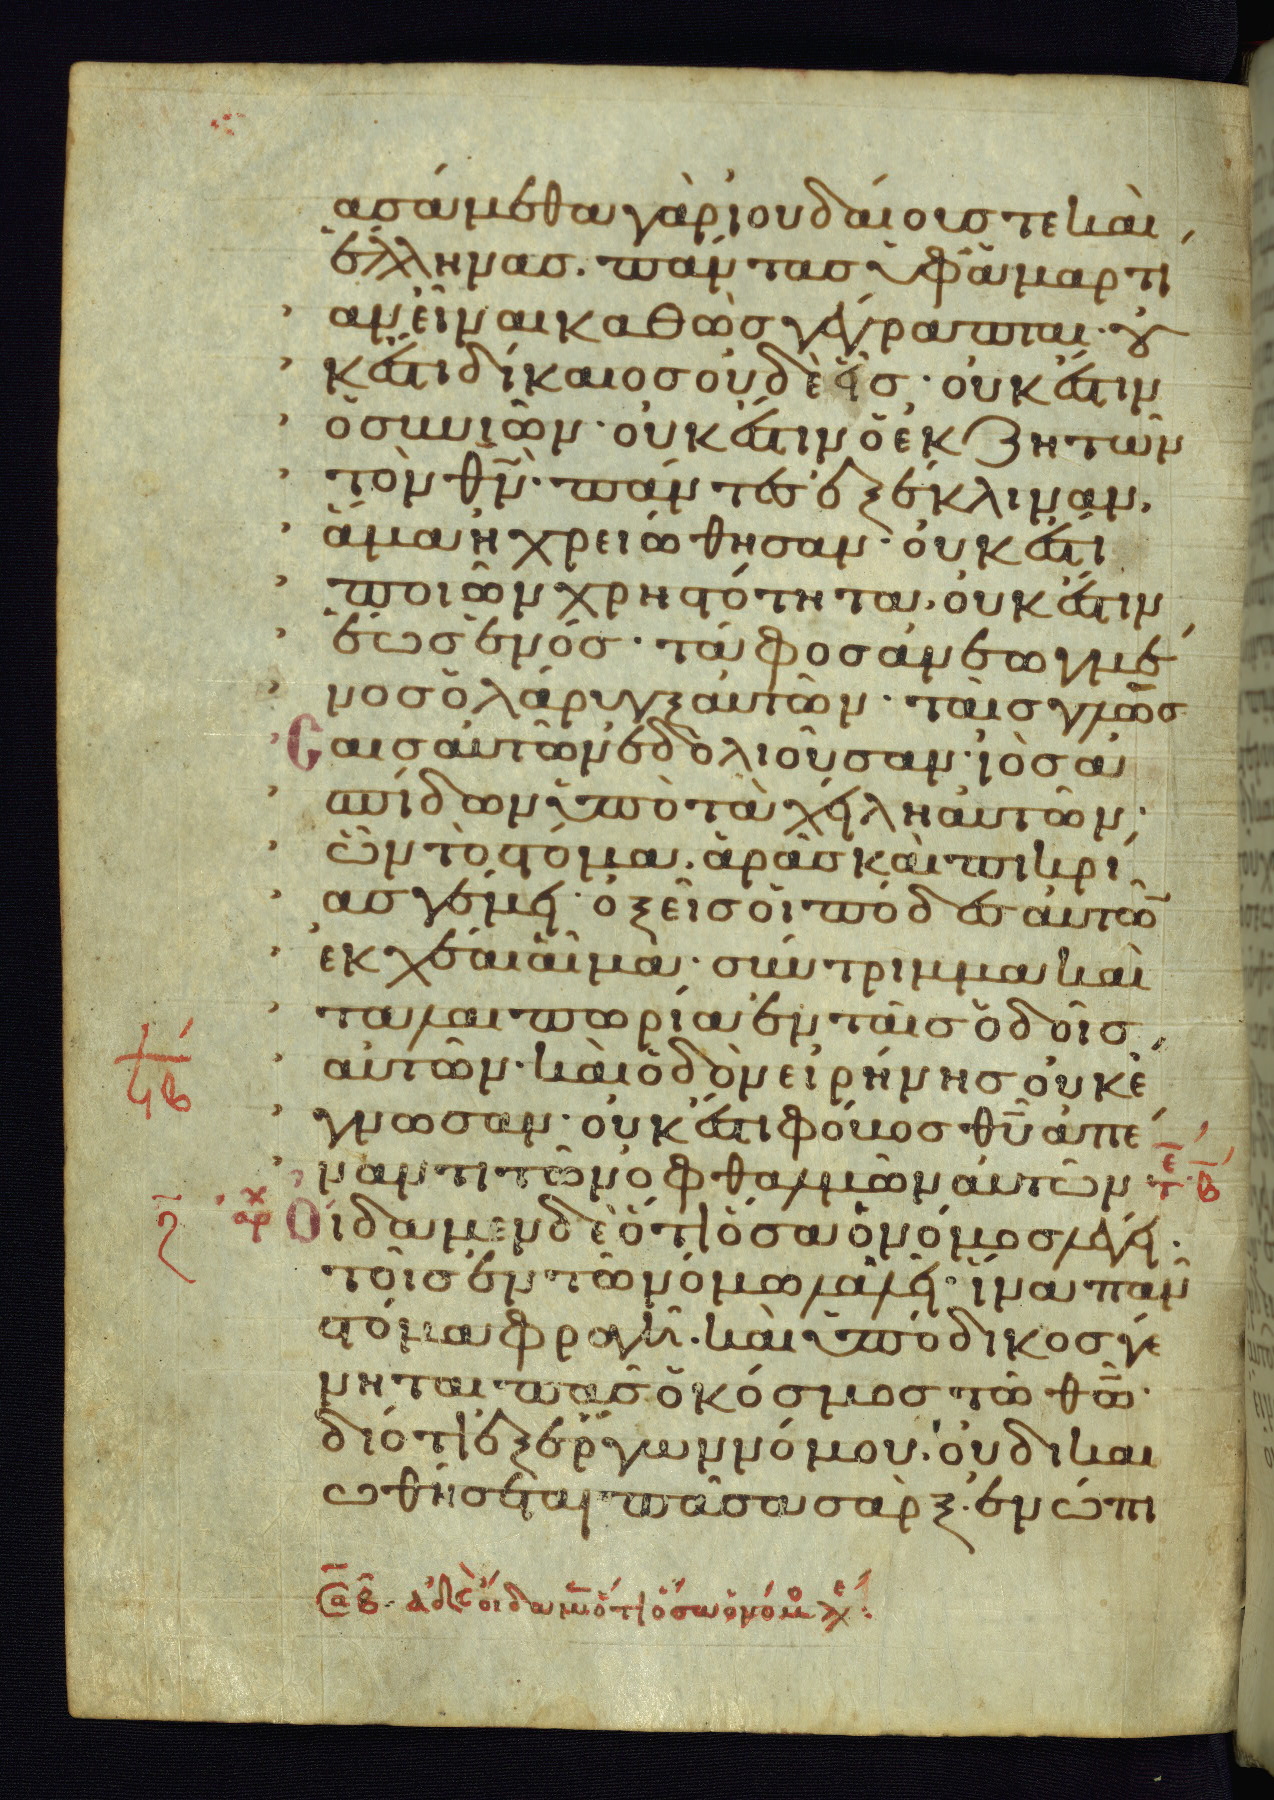 ασάμεθα γὰρ ἰουδαίοις τε καὶ
ἕλληνας. πάντας ὑφ ἁμαρτί
αν εἶναι καθὼς γέγραπται· οὐ
κ ἔστι δίκαιος οὐδὲ εἷς· οὐκ ἔστιν
ὁ συνιῶν· οὐκ ἔστιν ὁ ἐκζητῶν
τὸν θν̄· πάντες ἐξέκλιναν,
ἅμα ἠχρειώθησαν· οὐκ ἔστι
ποιῶν χρηστότητα, οὐκ ἔστιν
ἕως ἑνός· τάφος ἀνεωγμέ
νος ὁ λάρυγξ αὐτῶν· ταῖς γλώσ
σαις αὐτῶν ἐδολιοῦσαν· ἰὸς ἀ
σπίδων ὑπὸ τὰ χείλη αὐτῶν·
ὧν τὸ στόμα ἀρᾶς καὶ πικρί
ας γέμει· ὀξεῖς οἱ πόδες αὐτῶ̄
ἐκχέαι αἷμα· σύντριμμα καὶ
ταλαιπωρία ἐν ταῖς ὁδοῖς
αὐτῶν· καὶ ὁδὸν εἰρήνης οὐκ ἔ
γνωσαν· οὐκ ἔστι φόβος θῡ ἀπέ
ναντι τῶν ὀφθαλμῶν αὐτῶν
Οἴδαμεν δὲ ὅτι ὅσα ὁ νόμος λέγει·
τοῖς ἐν τῶ νόμω λαλεῖ· ἵνα πᾶν
στόμα φραγῆ· καὶ ὑπόδικος γέ
νηται πᾶς ὁ κόσμος τῶ θω̄·
διότι ἐξ ἔργων νόμου· οὐ δικαι
ωθήσεται πᾶσα σὰρξ· ἐνώπι
ἀδελ οἴδαμεν ὅτι ὅσα ὁ νόμο λε